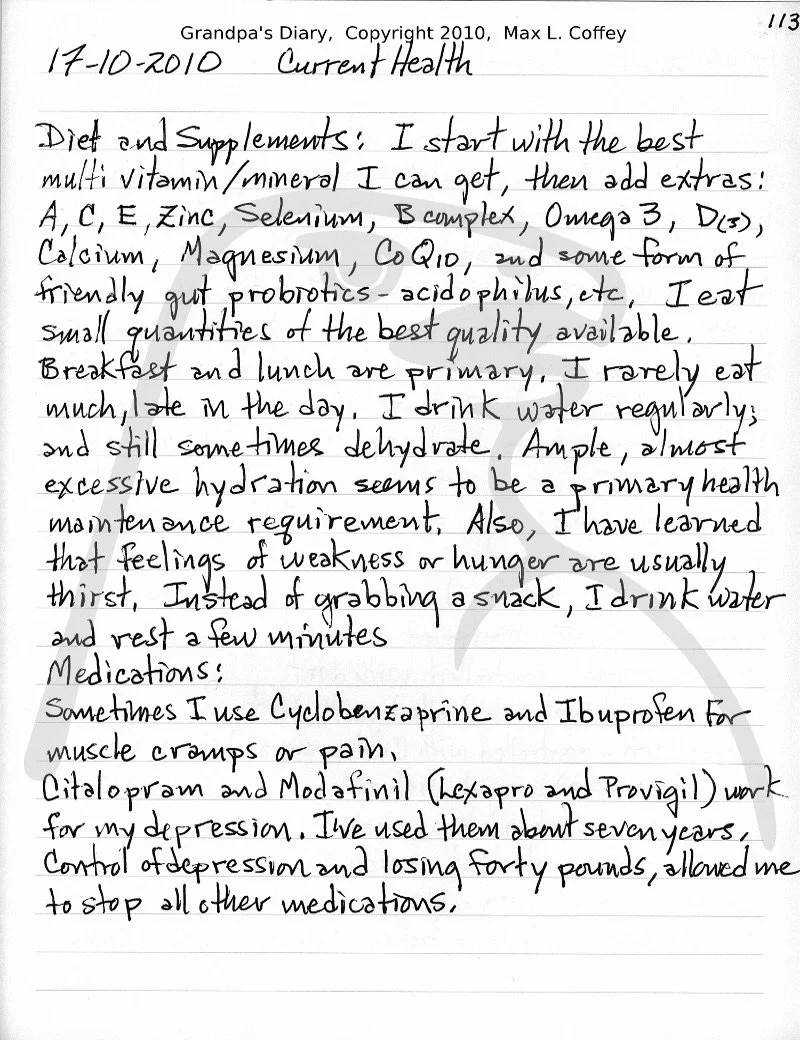 113
Grandpa's Diary, Copyright 2010, Max L. Coffey
17-10-2010 Current Health
Diet and Supplements: I start with the best
multi vitamin/mineral I can get, then add extras:
A, C, E, Zinc, Selenium, B complex, Omega 3, D(3),
Calcium, Magnesium, CoQ10, and some form of
friendly gut probiotics - acidophilus, etc. I eat
small quantities of the best quality available.
Breakfast and lunch are primary. I rarely eat
much, late in the day. I drink water regularly;
and still sometimes dehydrate. Ample, almost
excessive hydration seems to be a primary health
maintenance requirement. Also, I have learned
that feelings of weakness or hunger are usually
thirst. Instead of grabbing a snack, I drink water
and rest a few minutes
Medications:
Sometimes I use Cyclobenzaprine and Ibuprofen For
muscle cramps or pain.
Citalopram and Modafinil (Lexapro and Provigil) work
for my depression. I've used them about seven years.
Control of depression and losing forty pounds, allowed me
to stop all other medications.